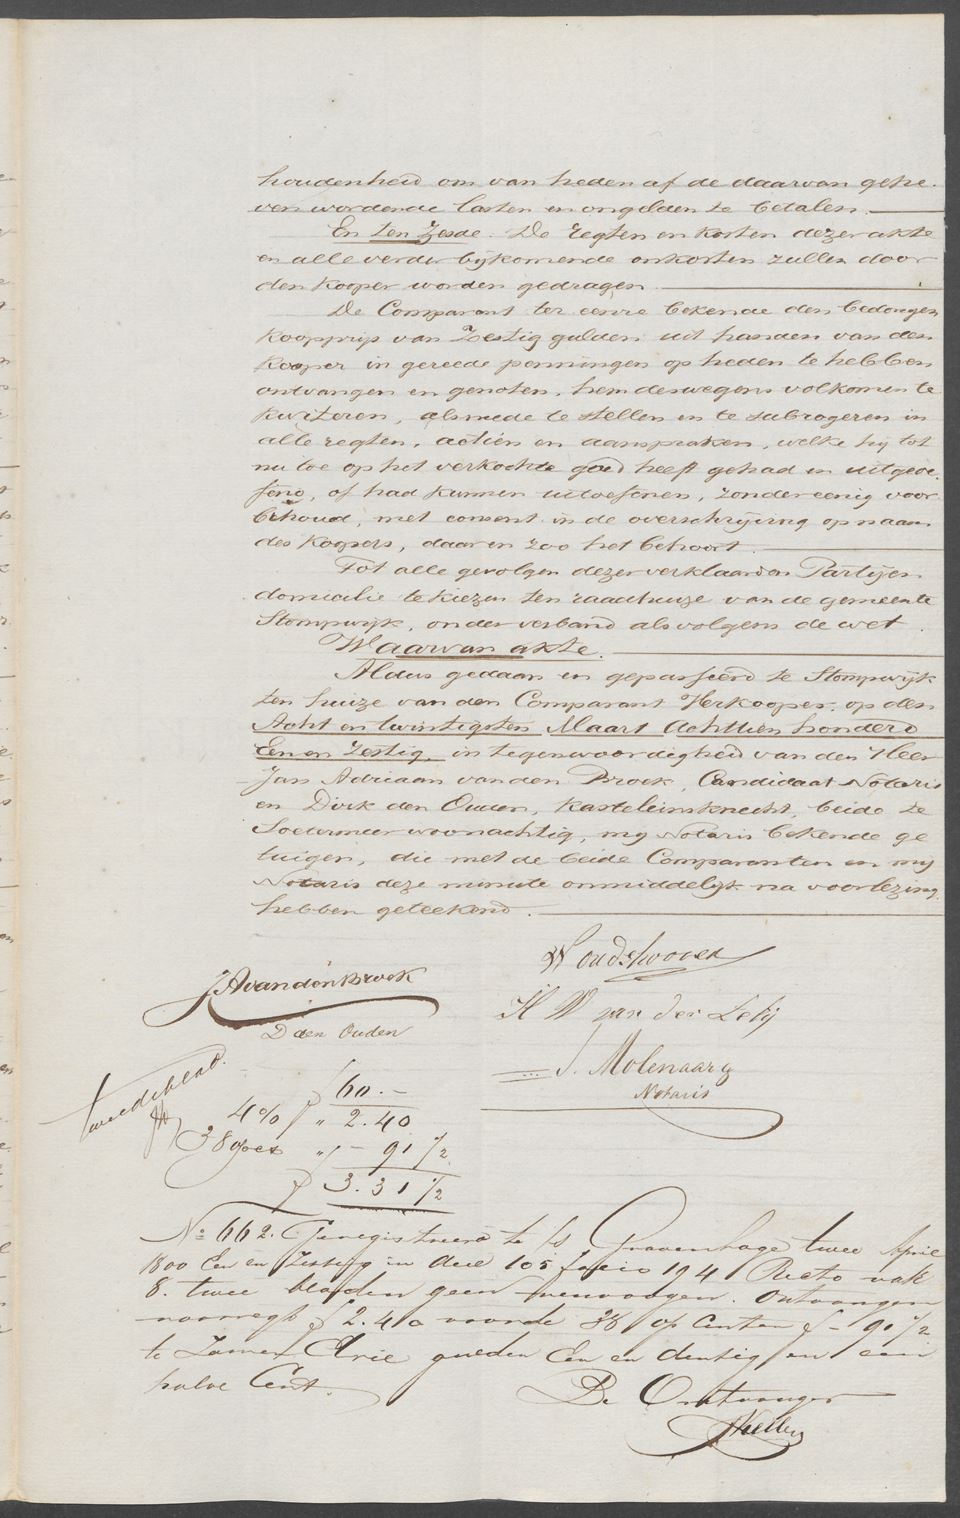 houdenheid om van heden af de daarvan gehe-
ven wordende lasten en ongelden te betalen.
En ten Zesde. De regten en kosten dezer akte
en alle verder bijkomende onkosten zullen door
den Kooper worden gedragen.
De Comparant ter eenre bekende den bedongen
koopprijs van Zestig gulden uit handen van den
Kooper in gereede penningen op heden te hebben
ontvangen en genoten, hem deswegens volkomen te
kwiteren, alsmede te stellen en te subrogeren in
alle regten, actiën en aanspraken, welke hij tot
nu toe op het verkochte goed heeft gehad en uitgeoe-
fend, of had kunnen uitoefenen, zonder eenig voor-
behoud, met consent in de overschrijving op naam
des Koopers, daar en zoo het behoort.
Tot alle gevolgen dezer verklaarden Partijen
domicilie te kiezen ten raadhuize van de gemeente
Stompwijk, onder verband als volgens de wet.
Waarvan akte.
Aldus gedaan en gepasseerd te Stompwijk
ten huize van den Comparant Verkooper, op den
Acht en twintigsten Maart Achttien honderd
Een en Zestig, in tegenwoordigheid van den Heer
Jan Adriaan van den Broek, Candidaat Notaris
en Dirk den Ouden, Kasteleinsknecht, beide te
Soetermeer woonachtig, mij Notaris bekende ge-
tuigen, die met de beide Comparanten en mij
Notaris deze minute onmiddelijk na voorlezing
hebben geteekend.
W Oudshoorn
JA van den Broek
H W van der
D den Ouden
J. Molenaar
Notaris
tweede blad.
f 60.-
4% " 2.40
38 opc " - 91 1/2
f 3.31 1/2
No 662. Geregistreerd te 's Gravenhage twee April
1800 Een en Zestig in deel 105 folio 194 Recto vak
8. twee bladen geen renvooijen. Ontvangen
voor regt f 2.40 voor de 38 op Centen f - 91 1/2
te zamen Drie gulden Een en dertig en een
halve Cent.
De Ontvanger